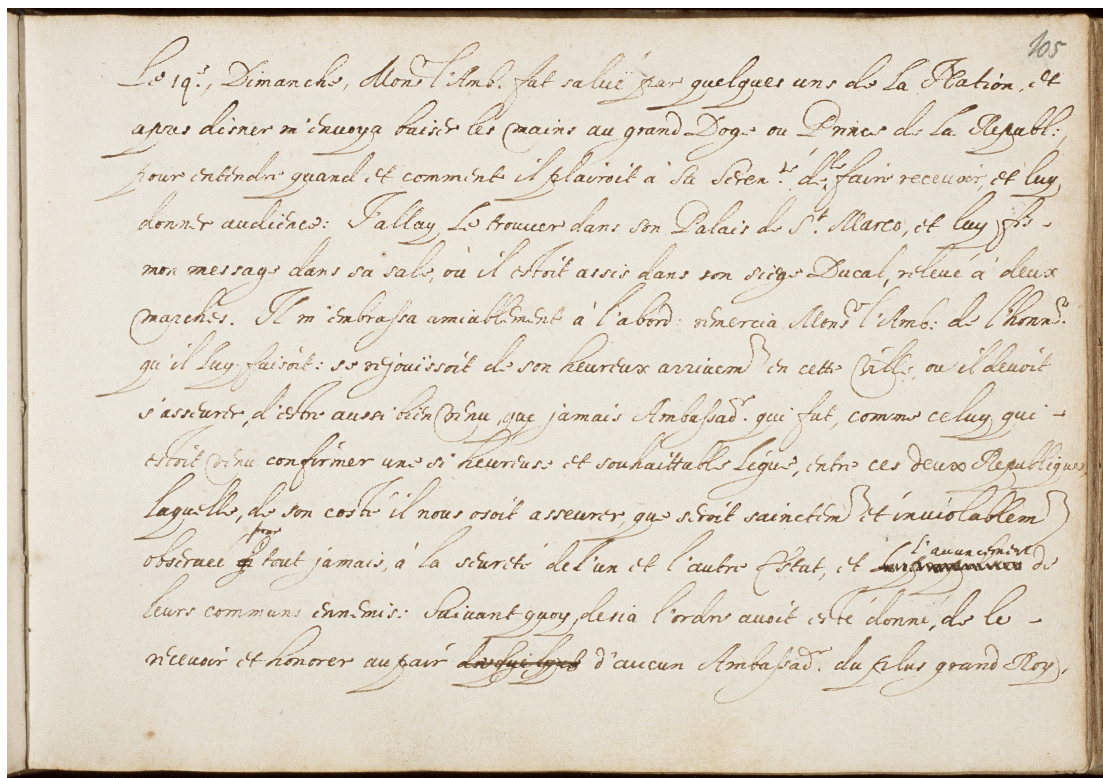 105
Le 19.e, Dimanche, Mons.r l'Amb. fut salüé par quelques uns de la Nation, et
apres disner m'envoya baiser les mains au grand Doge ou Prince de la Republ:,
pour entendre quand et comment il plairoit à sa Seren.té de le faire recevoir, et luy
donner audience: J'allay le trouver dans son Palais de S.t Marco, et luy fis -
mon message dans sa sale, où il estoit assis dans son siege Ducal, relevé à deux
marches. Il m'embrassa amiablement à l'abord: remercia Mons.r l'Amb: de l'honn.r
qu'il luy faisoit: se rejouissoit de son heureux arrivem en cette Ville, ou il devoit
s'asseurer, d'estre aussi bien venu, que jamais Ambassad.r qui fut, comme celuy qui -
estoit venu confirmer une si heureuse et souhaittable Ligue, entre ces deux Republiques,
laquelle, de son costé il nous osoit asseurer, que seroit sainctem et inviolablem
pour
observee tout jamais, à la seureté de l'un et l'autre Estat, et l'avancement de
leurs communs ennemis: Suivant quoy, desia l'ordre avoit esté donné, de le -
recevoir et honorer au pair d'aucun Ambassad.r du plus grand Roy,